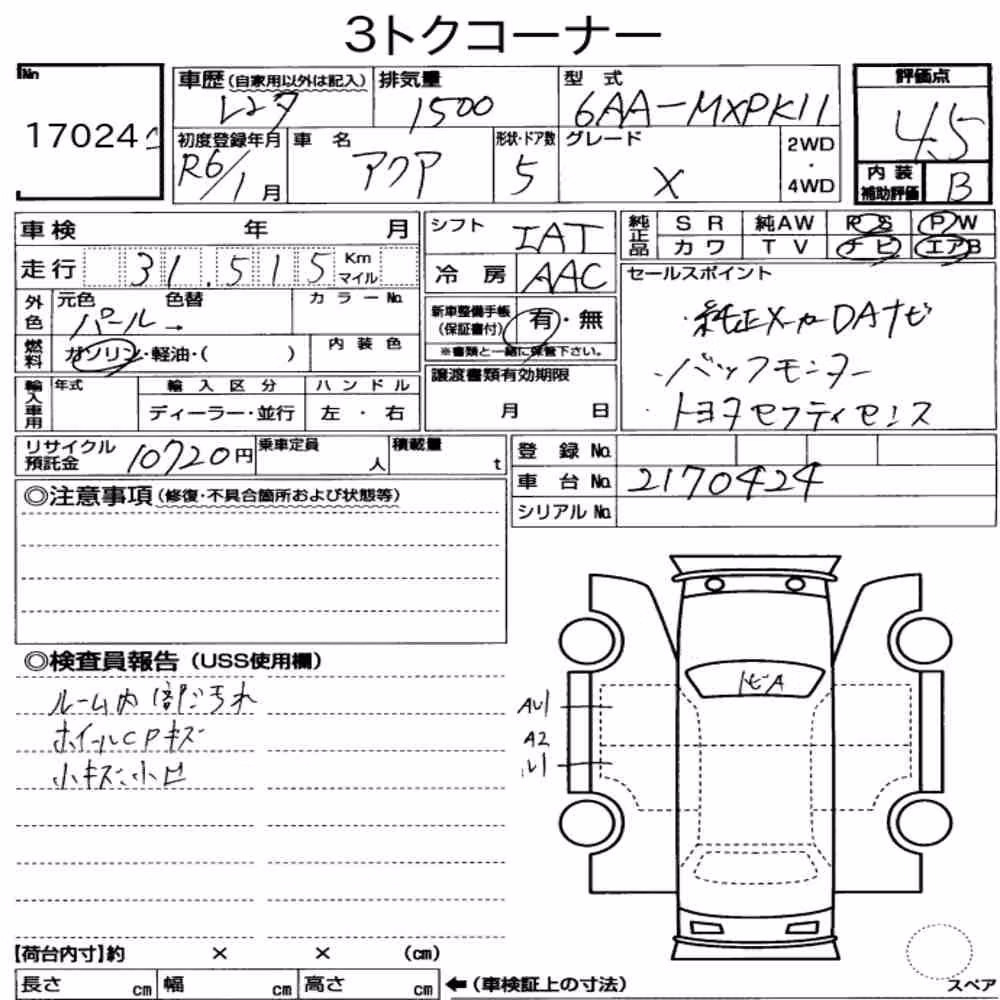 3トクコーナー
No
17024
車歴(自家用以外は記入) 排気量 型式 評価点
レンタ 1500 6AA-MXPK11 4.5
初度登録年月 車名 形状・ドア数 グレード 2WD・4WD
R6/1月 アクア 5 X
内装補助評価 B
車検 年 月
シフト IAT
純正品 SR 純AW PS PW
カワ TV ナビ エアB
走行 31,515 Km マイル
冷房 AAC
セールスポイント
外色 元色 色替 カラーNo.
パール→
新車整備手帳(保証書付) 有・無
※書類と一緒に保管下さい。
・純正メーカーDAナビ
燃料 ガソリン・軽油・( ) 内装色
・バックモニター
輸入車用 年式 輸入区分 ハンドル
ディーラー・並行 左・右
譲渡書類有効期限
月 日
・トヨタセフティセンス
リサイクル預託金 10720円 乗車定員 人 積載量 t
登録No.
車台No. 2170424
シリアルNo.
◎注意事項(修復・不具合箇所および状態等)
◎検査員報告(USS使用欄)
ルーム内部汚れ
ホイールCPキズ
小キズ小凹
トビA
AU1
A2
【荷台内寸】約 × × (cm)
長さ cm 幅 cm 高さ cm ←(車検証上の寸法)
スペア